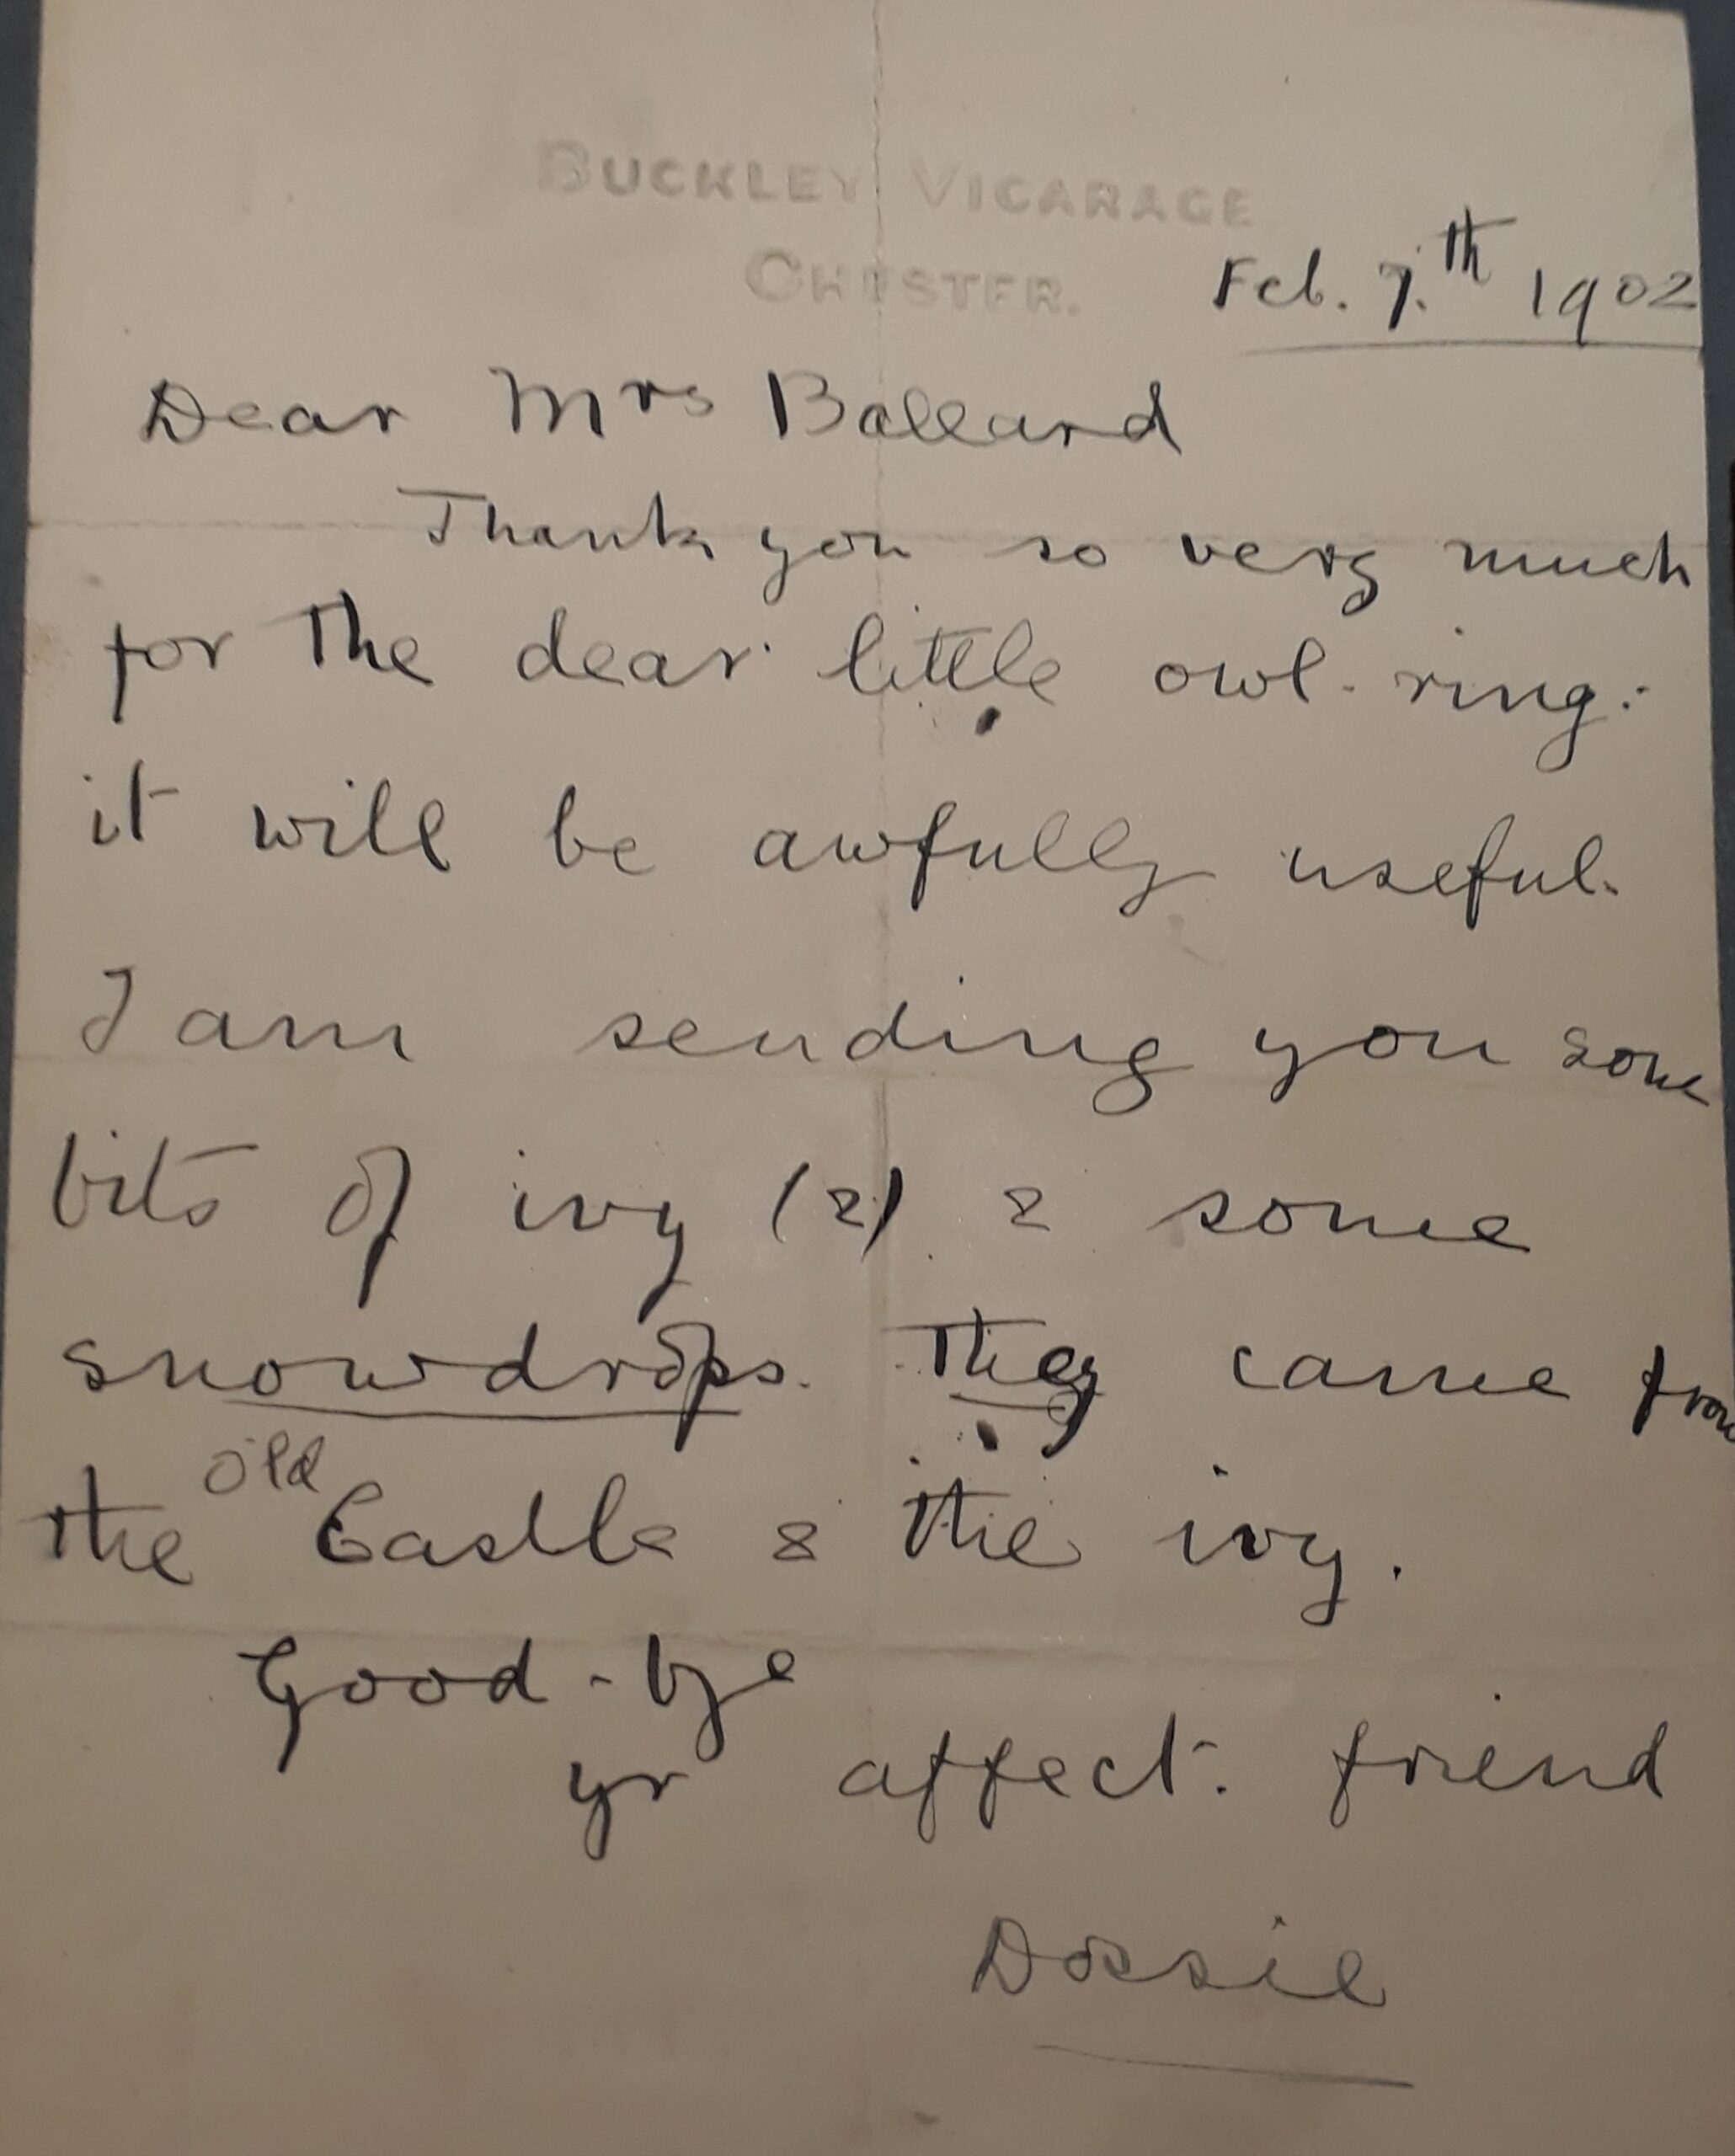 BUCKLEY VICARAGE
CHESTER.
Feb. 7.th 1902
Dear Mrs Ballard
Thank you so very much
for the dear little owl-ring:
it will be awfully useful.
I am sending you some
bits of ivy (2) & some
snowdrops. They came from
the old Castle & the ivy.
Good-bye
yr affect: friend
Dossie